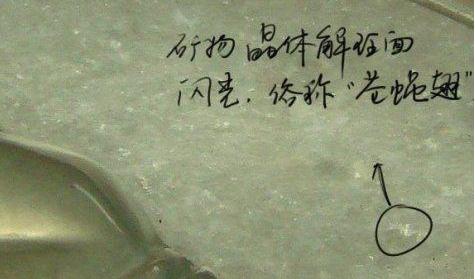 矿物晶体解理面
闪亮.俗称“苍蝇翅”